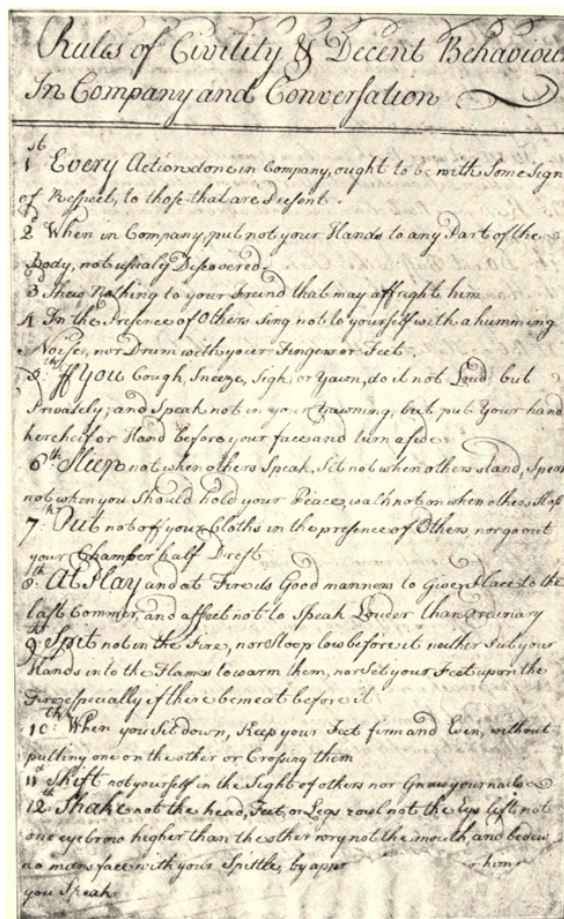 Rules of Civility & Decent Behaviour
In Company and Conversation
1st Every Action done in Company, ought to be with Some Sign
of Respect, to those that are Present.
2d When in Company, put not your Hands to any Part of the
Body, not usualy Discovered.
3 Shew Nothing to your Freind that may affright him
4 In the Presence of Others Sing not to yourself with a humming
Noise, nor Drum with your Fingers or Feet.
5th If You Cough, Sneeze, Sigh, or Yawn, do it not Loud but
Privately; and Speak not in your Yawning, but put Your hand
hercheif or Hand before your face and turn aside
6th Sleep not when others Speak, Sit not when others stand, Speak
not when you Should hold your Peace, walk not on when others Stop
7th Put not off your Cloths in the presence of Others nor go out
your Chamber half Drest
8th At Play and at Fire its Good manners to Give Place to the
last Commer, and affect not to Speak Louder than ordinary
9th Spit not in the Fire, nor Stoop low before it neither Put your
Hands into the Flames to warm them, nor Set your Feet upon the
Fire especially if there be meat before it
10th When you Sit down, Keep your Feet firm and Even, without
putting one on the other or Crossing them
11th Shift not yourself in the Sight of others nor Gnaw your nails
12th Shake not the head, Feet, or Legs rowl not the Eys lift not
one eyebrow higher than the other wry not the mouth, and bedew
no mans face with your Spittle, by app r him
you Speak